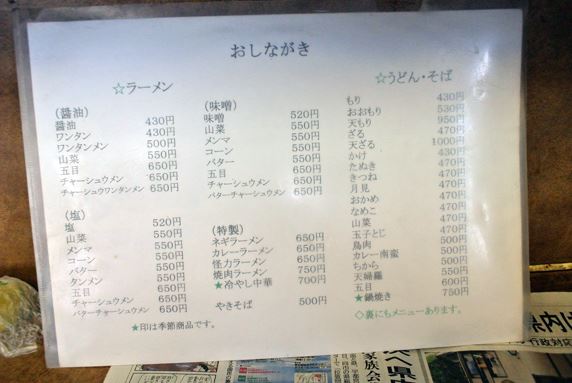 おしながき
☆ラーメン
(醤油)
醤油 430円
ワンタン 430円
ワンタンメン 500円
山菜 550円
五目 650円
チャーシュウメン 650円
チャーシュウワンタンメン 650円
(塩)
塩 520円
山菜 550円
メンマ 550円
コーン 550円
バター 550円
タンメン 550円
五目 650円
チャーシュウメン 650円
バターチャーシュウメン 650円
★印は季節商品です。
(味噌)
味噌 520円
山菜 550円
メンマ 550円
コーン 550円
バター 550円
五目 650円
チャーシュウメン 650円
バターチャーシュウメン 650円
(特製)
ネギラーメン 650円
カレーラーメン 650円
怪力ラーメン 650円
焼肉ラーメン 750円
★冷やし中華 700円
やきそば 500円
☆うどん・そば
もり 430円
おおもり 530円
天もり 950円
ざる 470円
天ざる 1000円
かけ 430円
たぬき 470円
きつね 470円
月見 470円
おかめ 470円
なめこ 470円
山菜 470円
玉子とじ 470円
鳥肉 500円
カレー南蛮 500円
ちから 500円
天婦羅 550円
五目 600円
★鍋焼き 750円
◇裏にもメニューあります。
県内は
行政対応
へ県
家族会